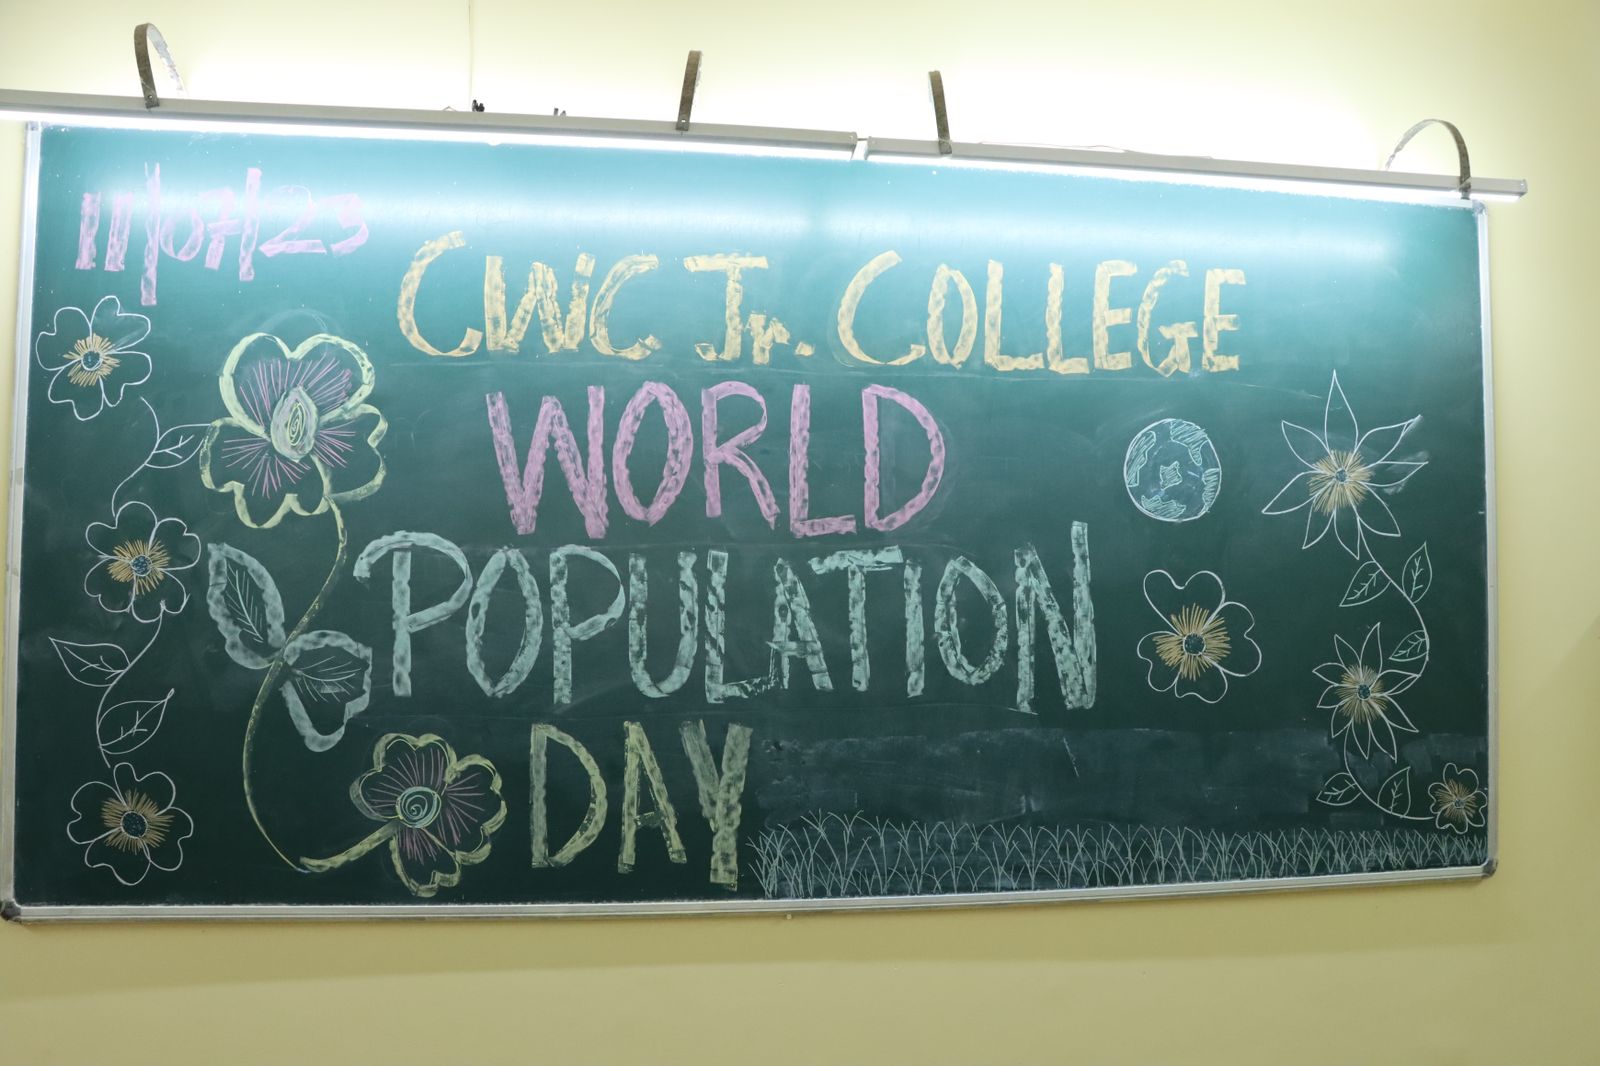 11/07/23
CWC Jr. COLLEGE
WORLD
POPULATION
DAY